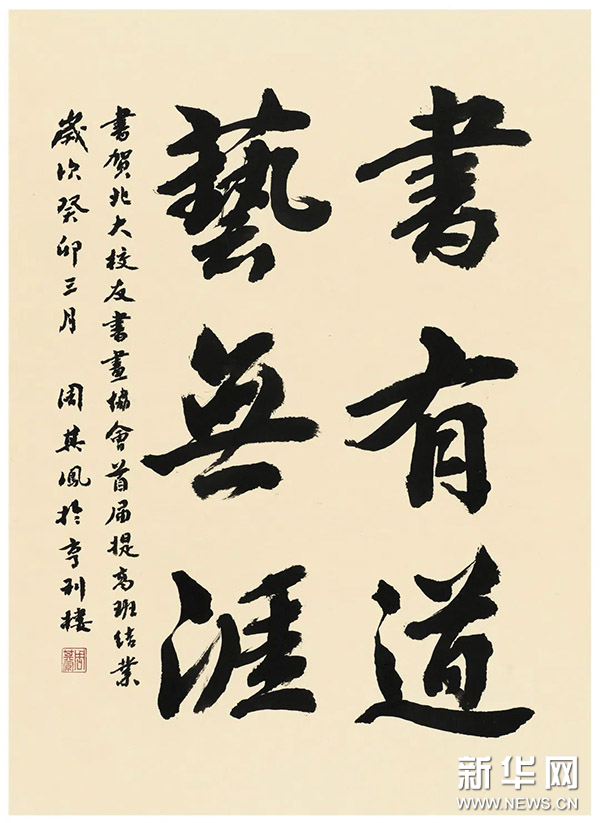 書有道
藝無涯
書賀北大校友書畫協會首届提高班结業
歲次癸卯三月 周其鳳於亨利樓
新华网
WWW.NEWS.CN